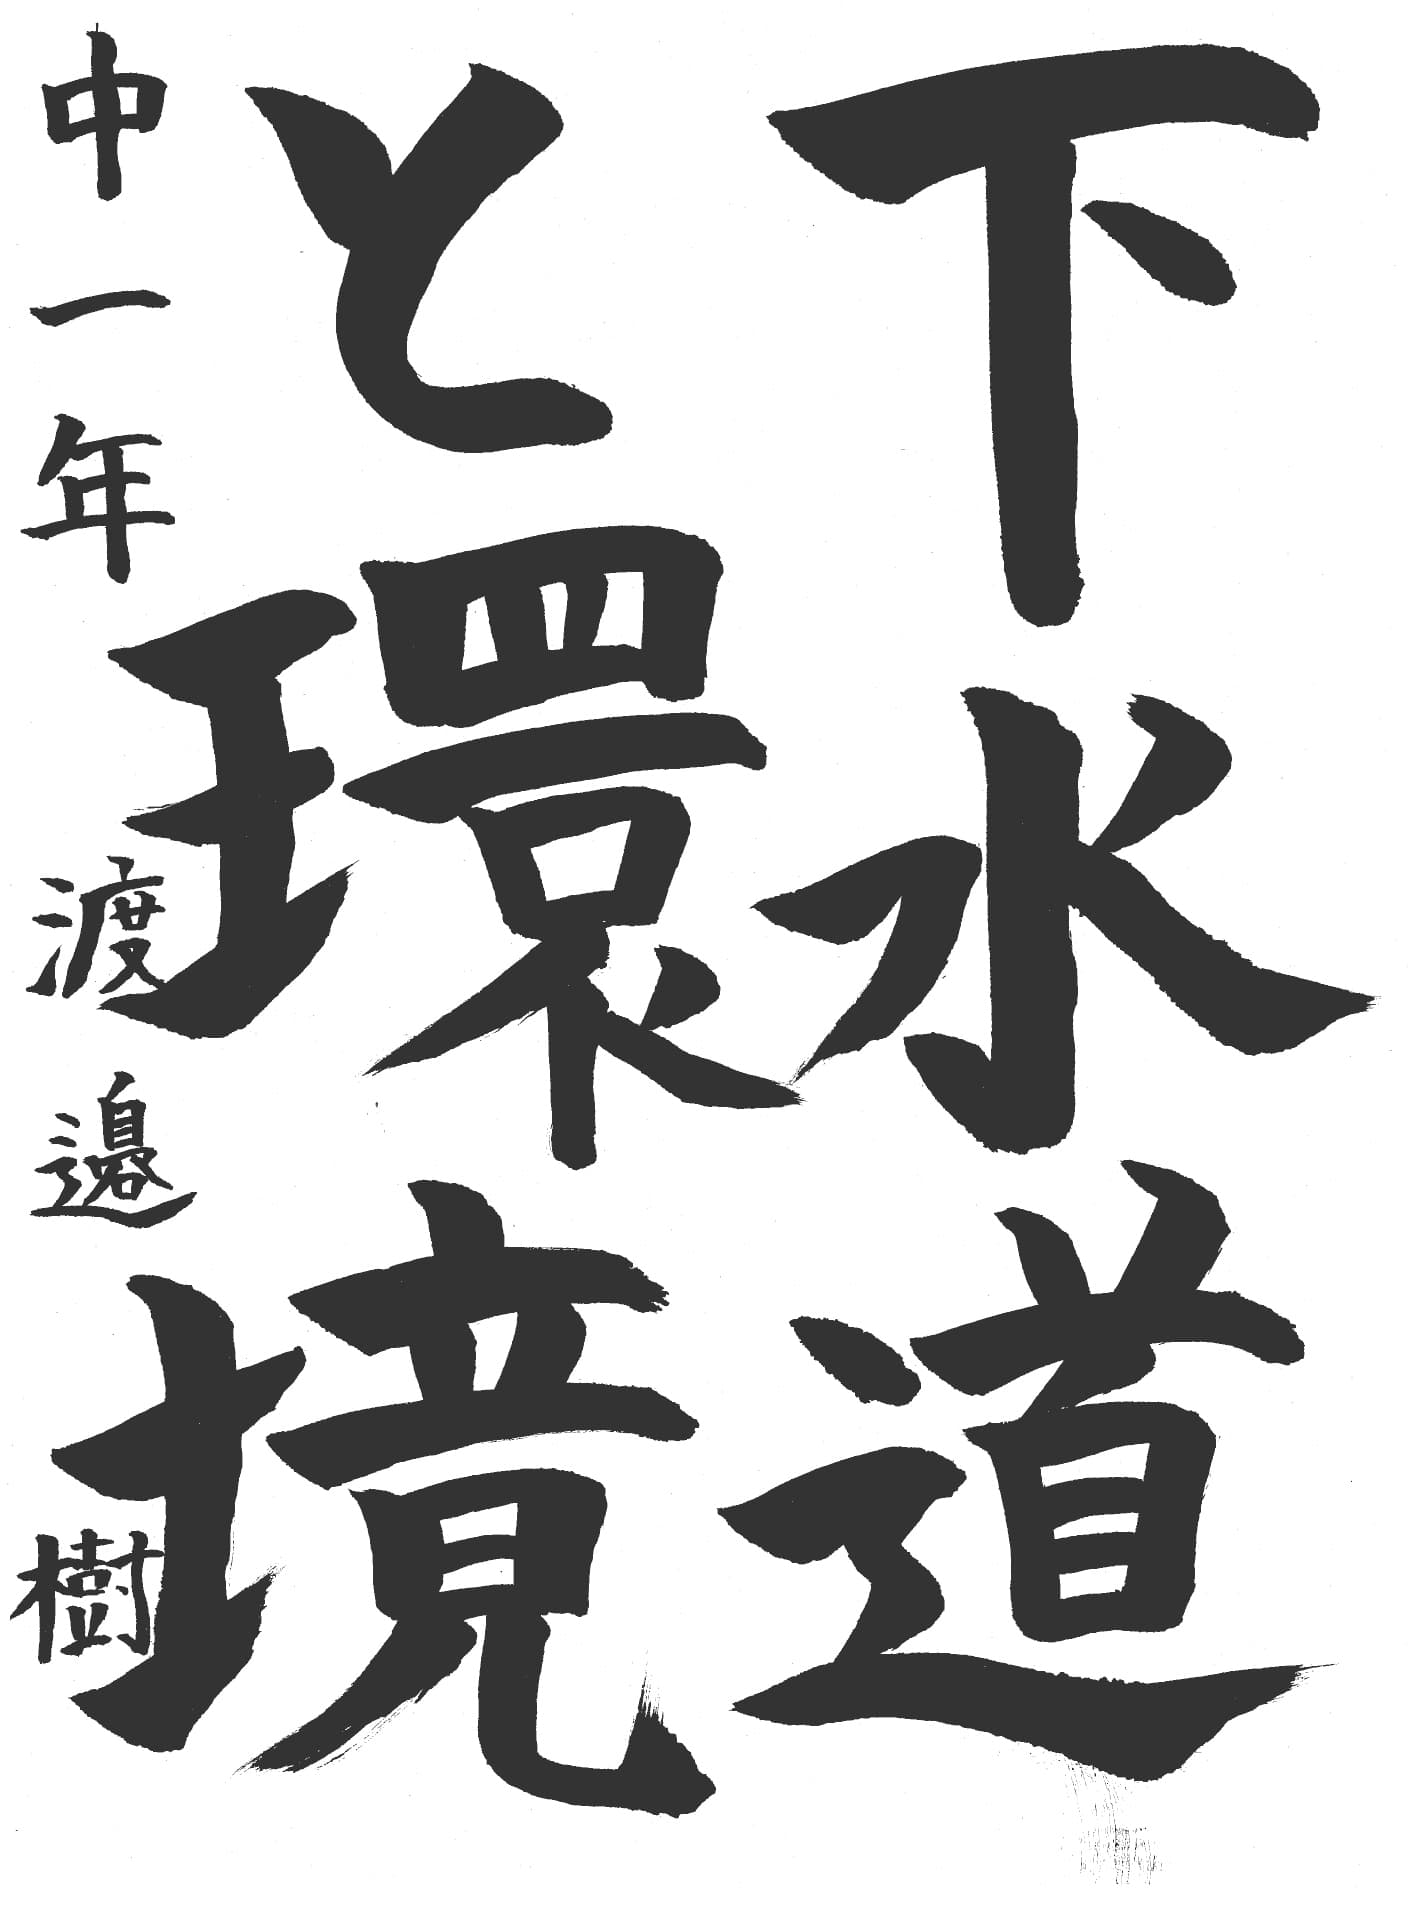 下水道
と環境
中一年 渡邊 樹